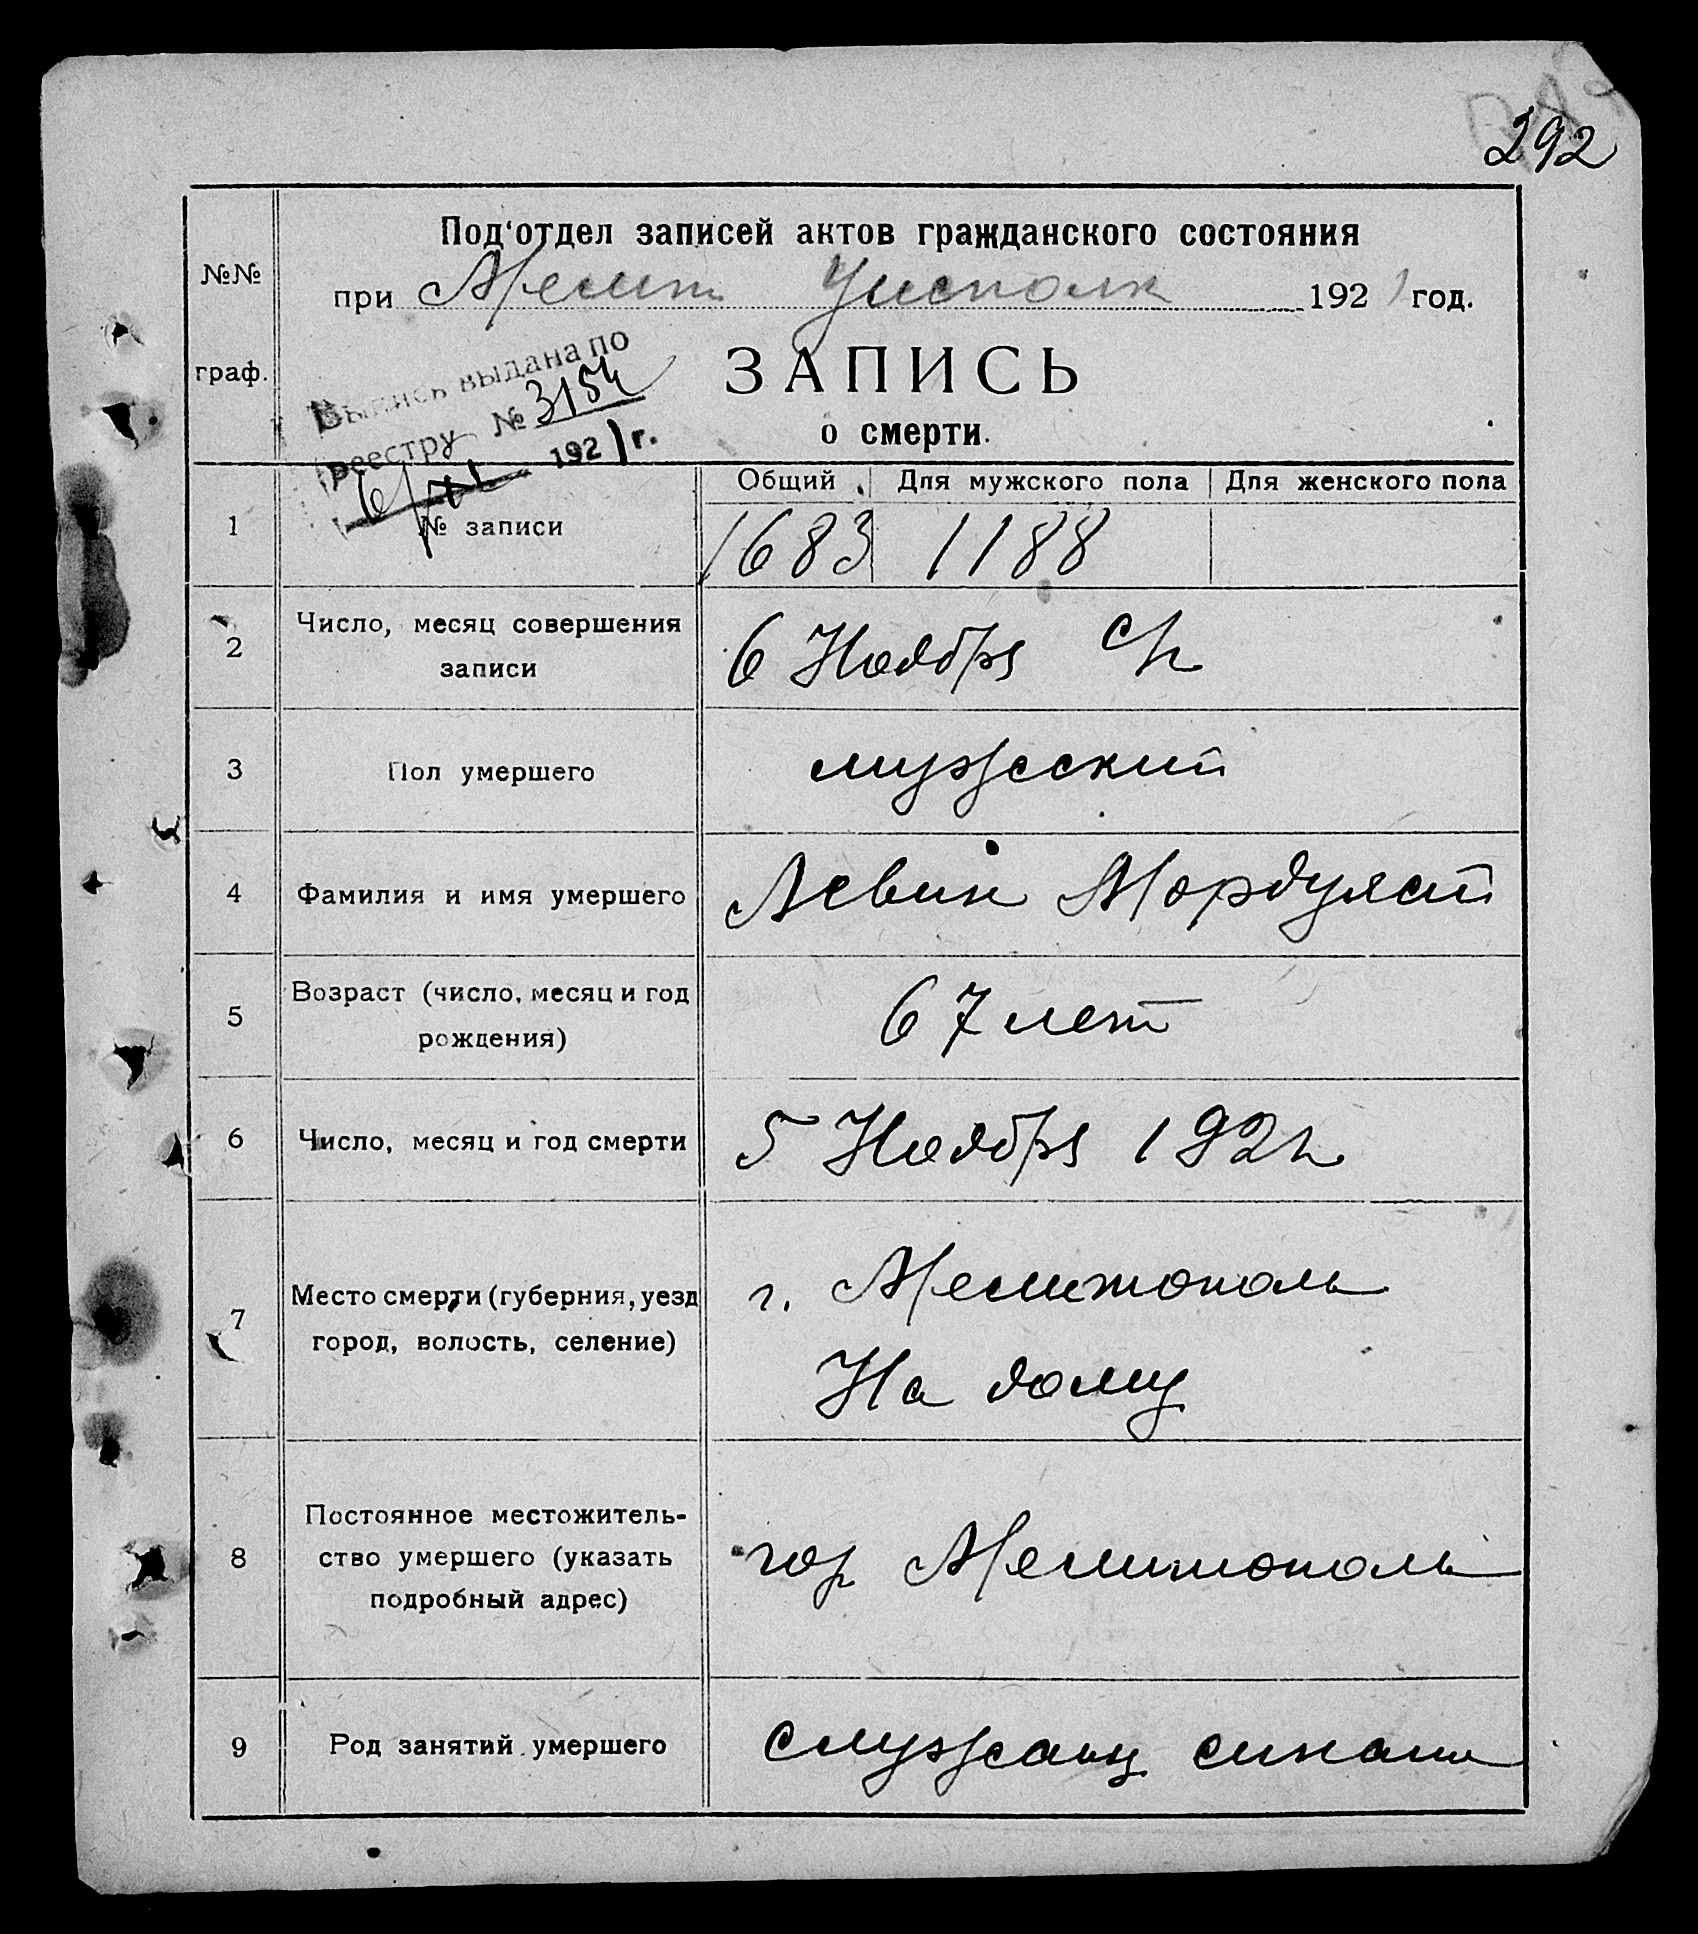 292
Под'отдел записей актов гражданского состояния
№№
при Мелит Уисполк 1921 год.
граф.
Выпись выдана по
реестру № 3154
6/XI 1921 г.
ЗАПИСЬ
о смерти.
Общий Для мужского пола Для женского пола
1 № записи 1683 1188
2 Число, месяц совершения
записи
6 Ноября с/г
3 Пол умершего мужеский
4 Фамилия и имя умершего Левин
5 Возраст (число, месяц и год
рождения)
67 лет
6 Число, месяц и год смерти 5 Ноября 1921г
7 Место смерти (губерния, уезд
город, волость, селение)
г. Мелитополь
На дому
8 Постоянное местожитель-
ство умершего (указать
подробный адрес)
гор Мелитополь
9 Род занятий умершего служащ синаг